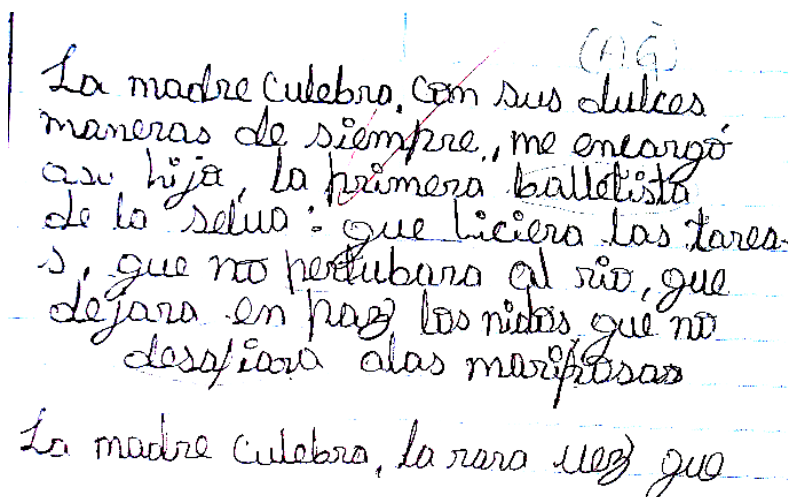 (AG)
La madre culebra, con sus dulces
maneras de siempre, me encargó
a su hija, la primera balletista
de la selva: que hiciera las tarea-
s, que no pertubara al rio, que
dejara en paz los nidos, que no
desafiara a las mariposas
La madre culebra, la rara vez que